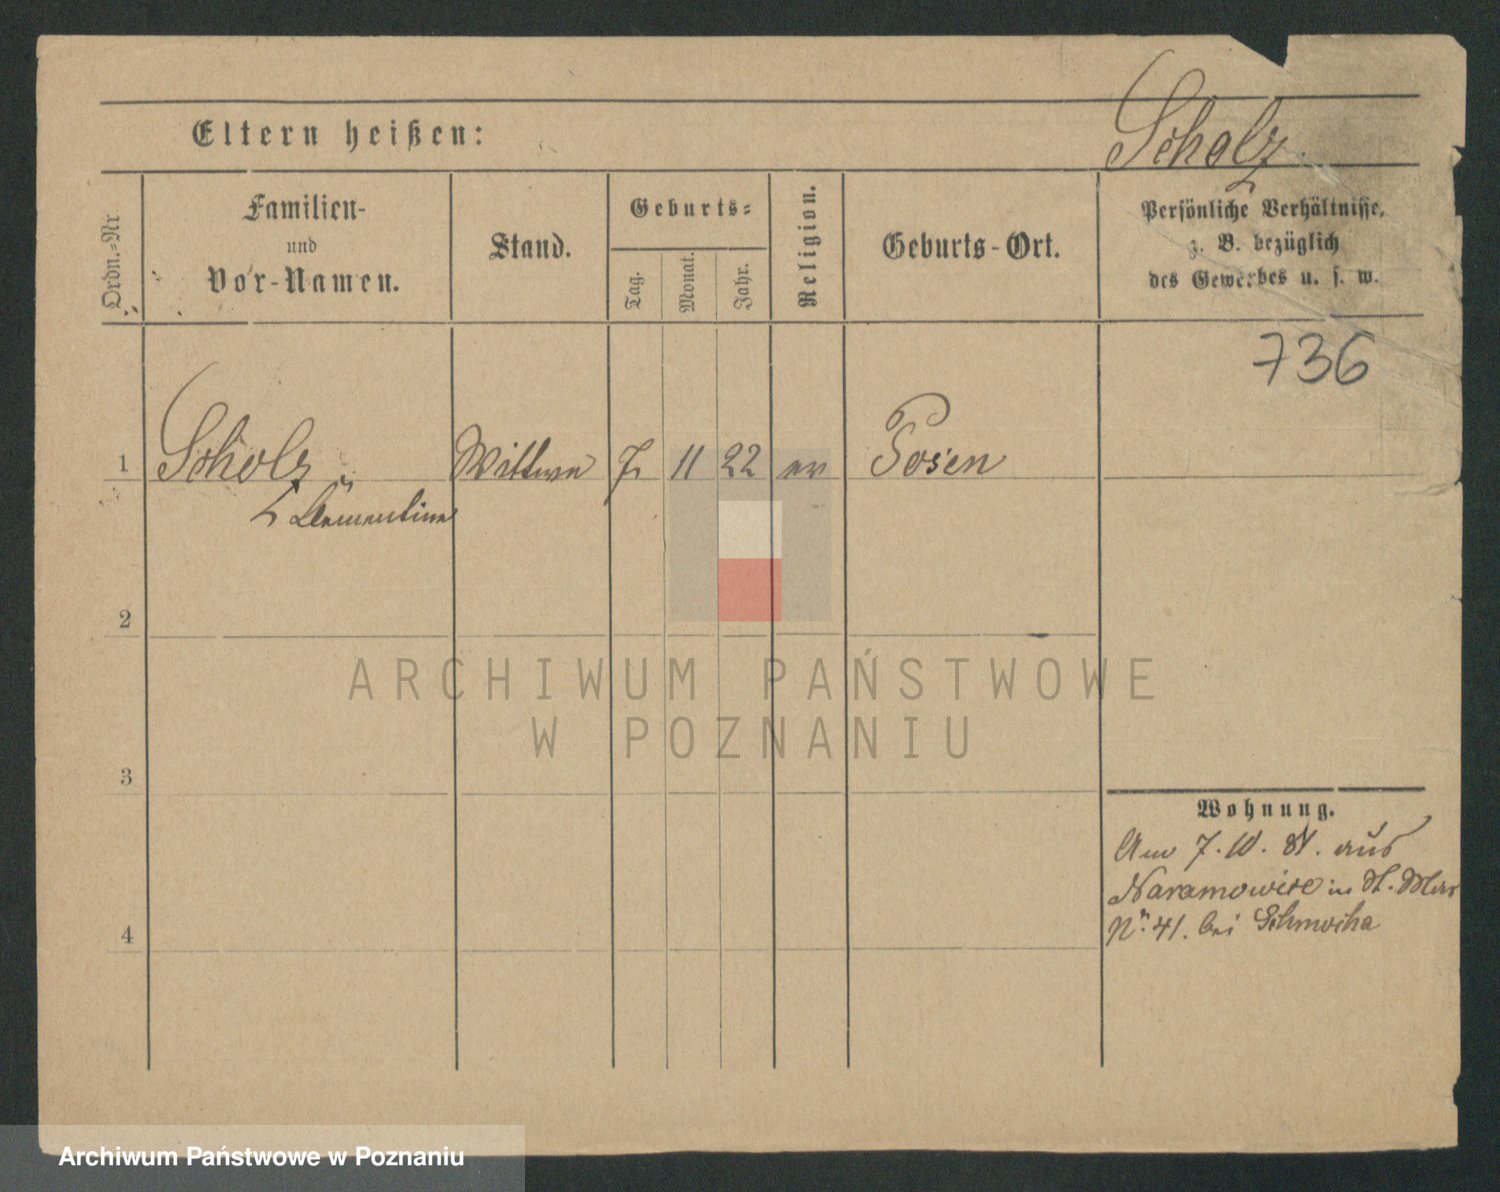 Scholz
Eltern heißen:
Ordn.-Nr
Familien-
und
Vor-Namen.
Stand.
Geburts-
Tag.
Monat.
Jahr.
Religion.
Geburts-Ort.
Persönliche Verhältnisse,
z. B. bezüglich
des Gewerbes u. s. w.
736
1 Scholz Wittwe 7 11 22 ev Posen
Clementine
2
3
4
Wohnung.
Am 7. 10. 81. aus
Naramowice in St.
No. 41. bei Schmocha
ARCHIWUM PAŃSTWOWE
W POZNANIU
Archiwum Państwowe w Poznaniu